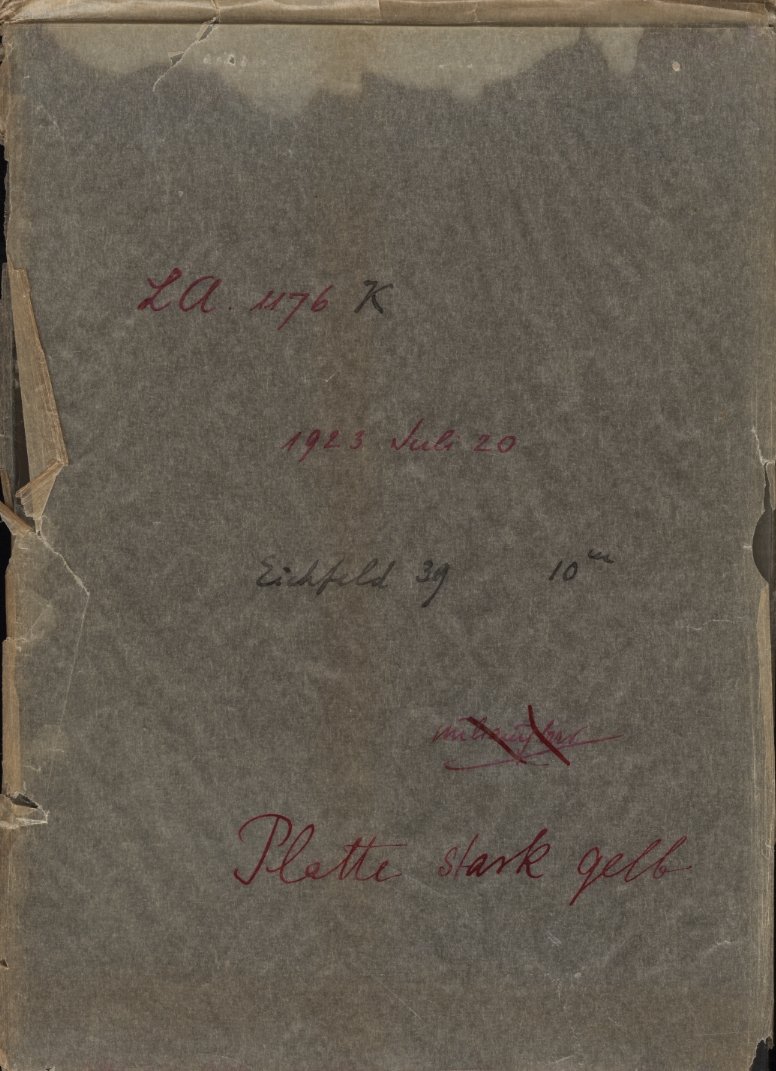 LA. 1176 K
1923 Juli 20
Eichfeld 39 10
Platte stark gelb